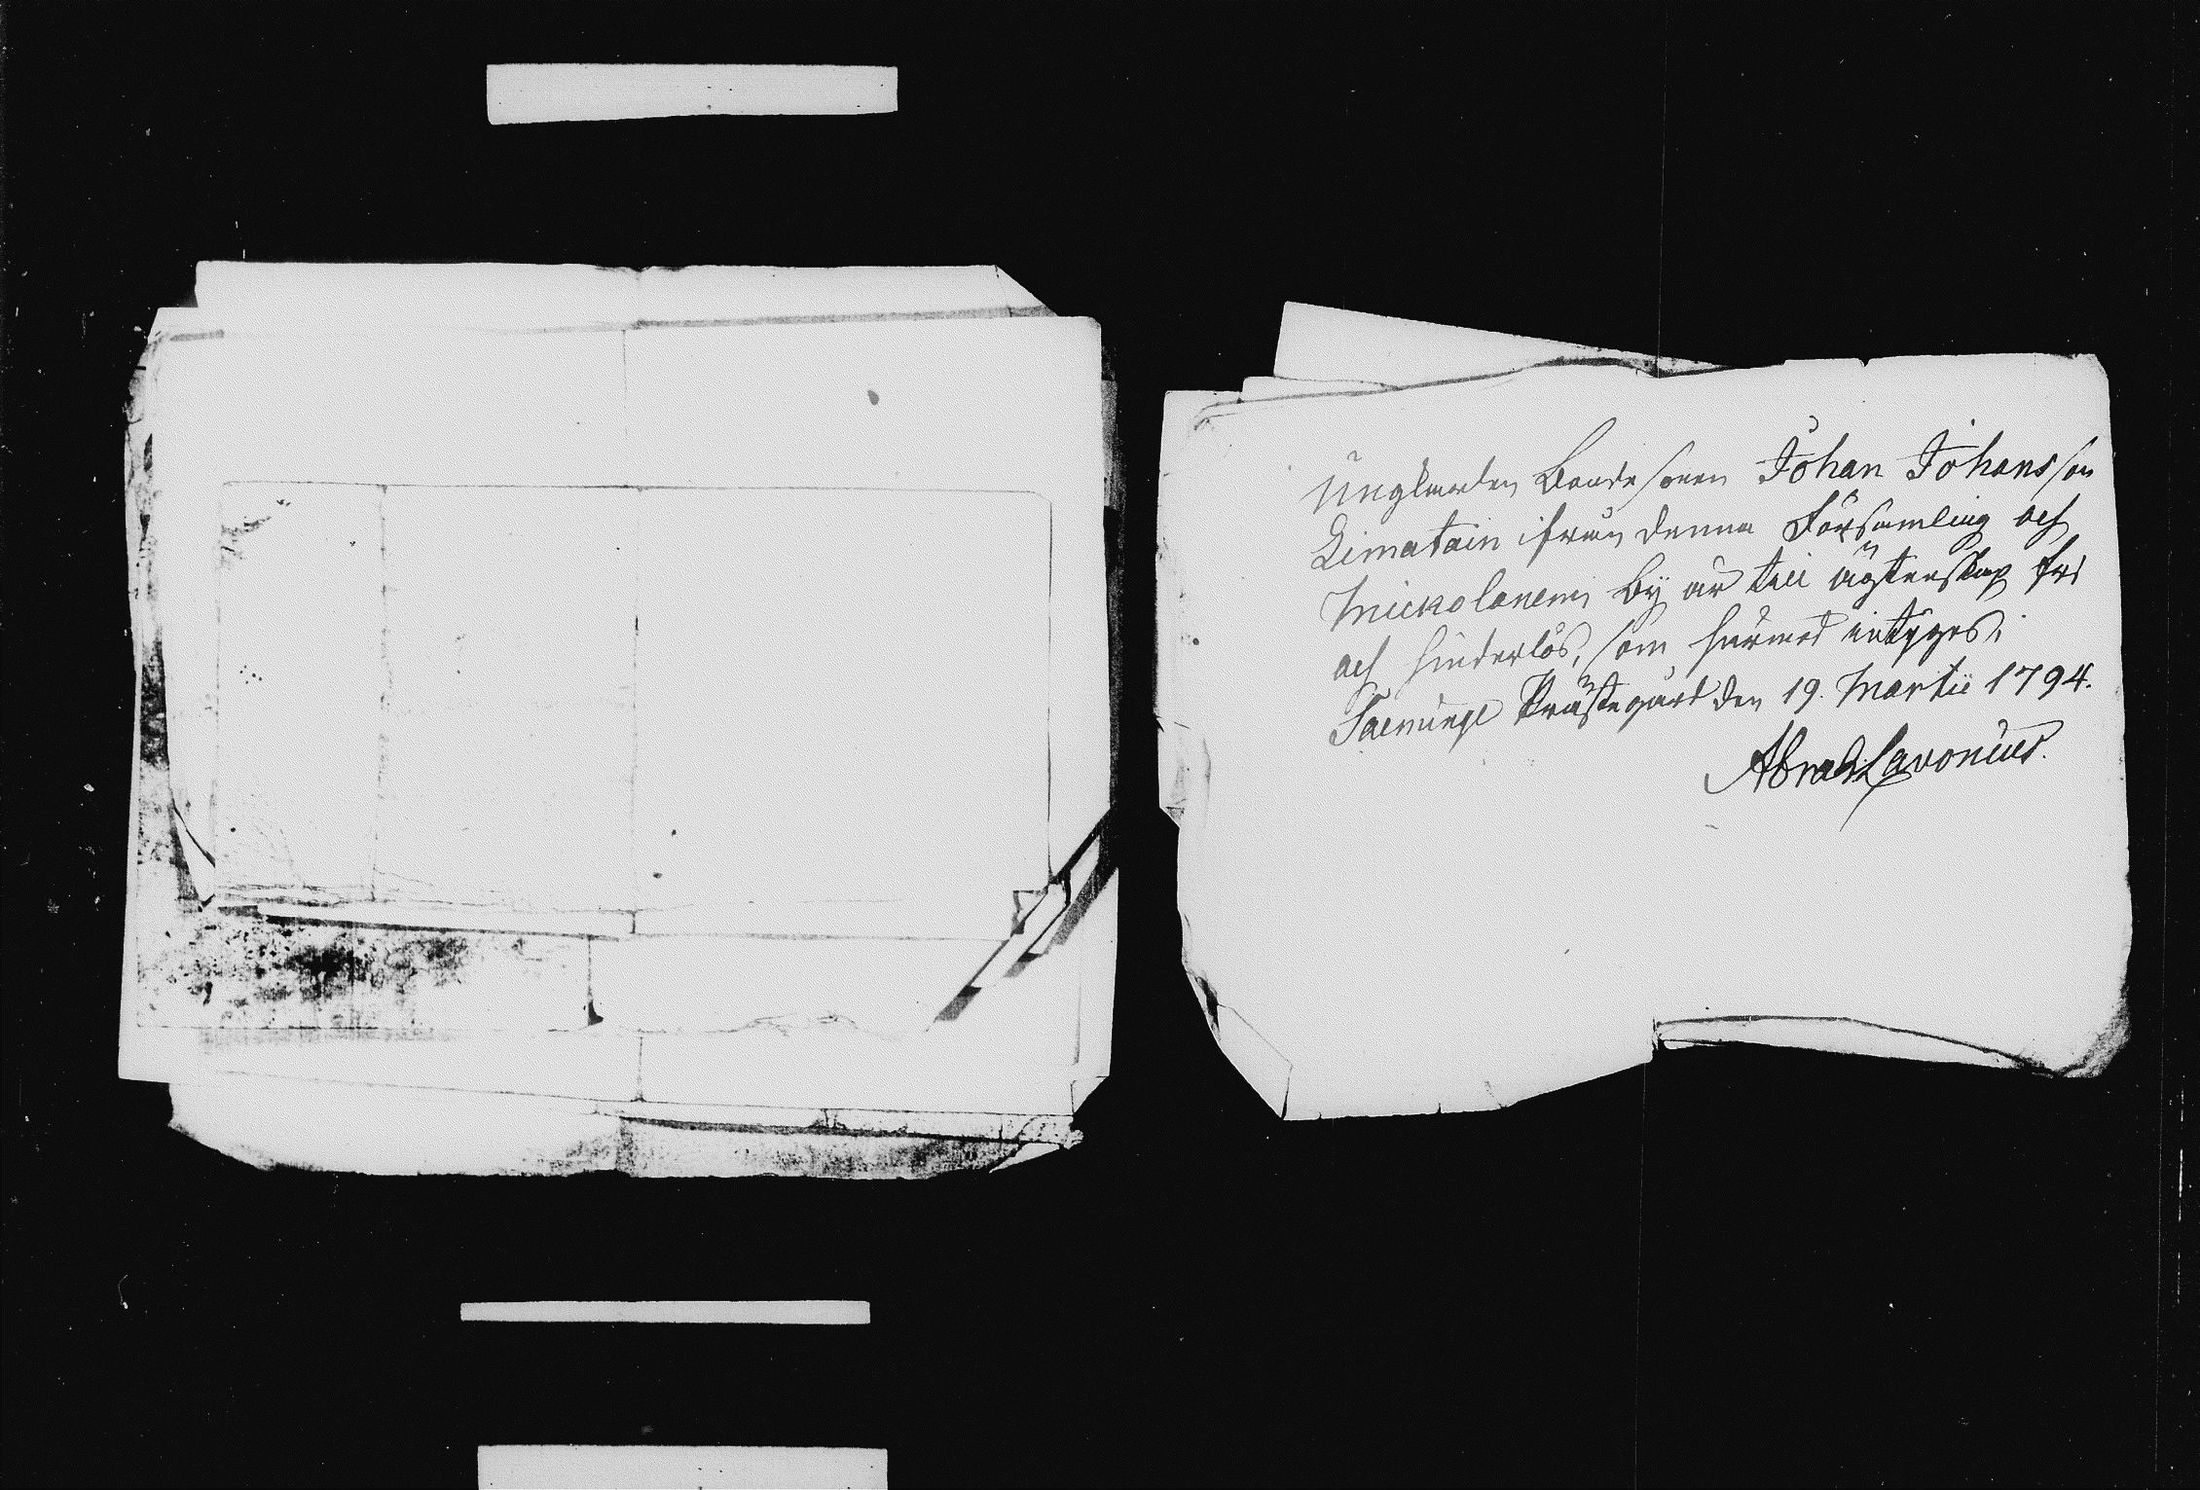 Ungkarlen Bondesonen Johan Johansson
Limatain ifrån denna Församling och
Mickolanemi By är till ägtenskap fri
och hinderlös, som härmed intyges.
Saeminge Prästegård den 19. Martii 1794.
Abrah. Lavonius.